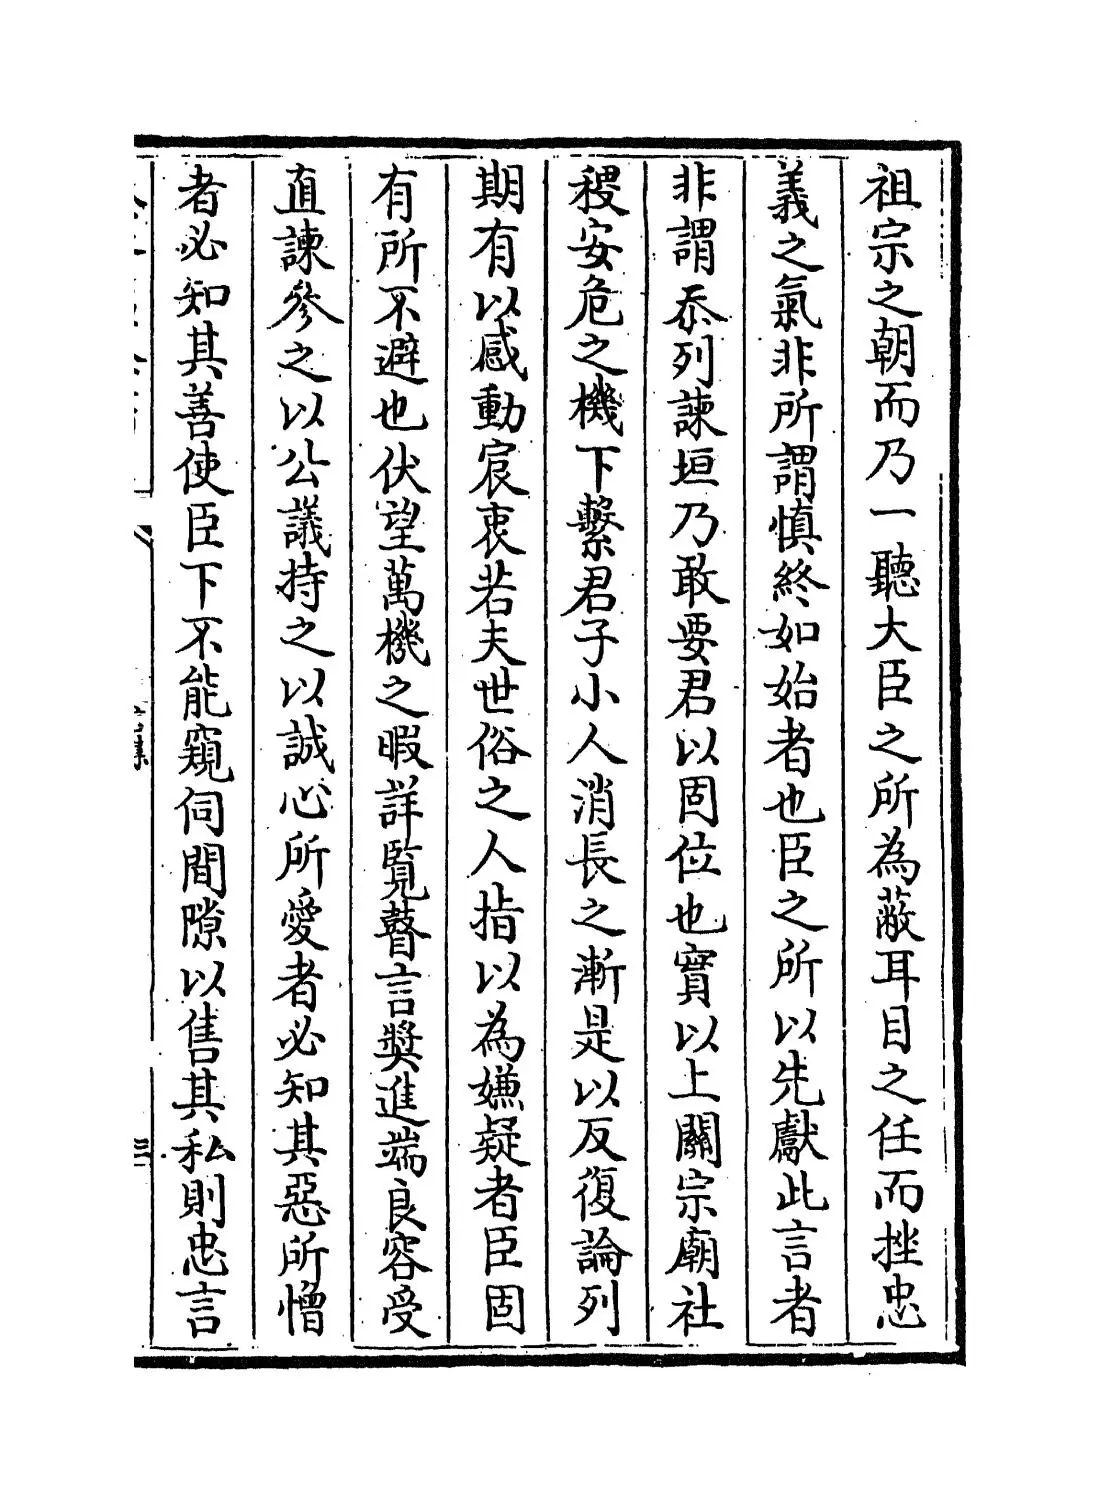 祖宗之朝而乃一聽大臣之所為蔽耳目之任而挫忠
義之氣非所謂慎終如始者也臣之所以先獻此言者
非謂忝列諫垣乃敢要君以固位也實以上關宗廟社
稷安危之機下繫君子小人消長之漸是以反復論列
期有以感動宸衷若夫世俗之人指以為嫌疑者臣固
有所不避也伏望萬機之暇詳覽瞽言奬進端良容受
直諫參之以公議持之以誠心所愛者必知其惡所憎
者必知其善使臣下不能窺伺間隙以售其私則忠言
三